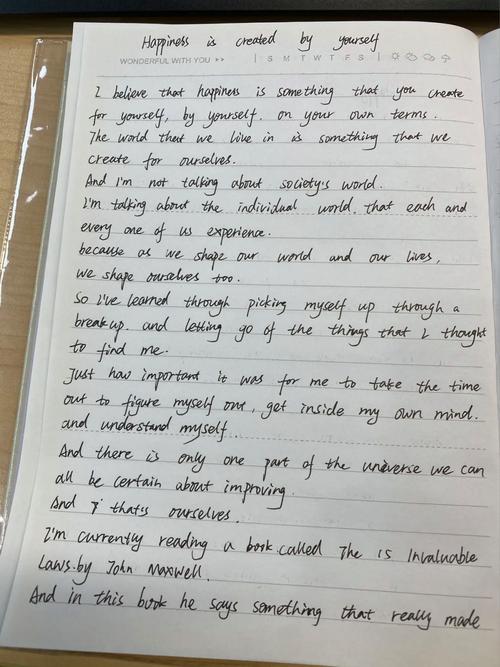 Happiness is created by yourself
WONDERFUL WITH YOU ▸▸ | S M T W T F S |
I believe that happiness is something that you create
for yourself, by yourself. on your own terms.
The world that we live in is something that we
create for ourselves.
And I'm not talking about society's world.
I'm talking about the individual world, that each and
every one of us experience.
because as we shape our world and our lives,
we shape ourselves too.
So I've learned through picking myself up through a
breakup. and letting go of the things that I thought
to find me.
Just how important it was for me to take the time
out to figure myself out, get inside my own mind.
and understand myself.
And there is only one part of the universe we can
all be certain about improving.
And that's ourselves.
I'm currently reading a book called The 15 Invaluable
Laws by John Maxwell.
And in this book he says something that really made